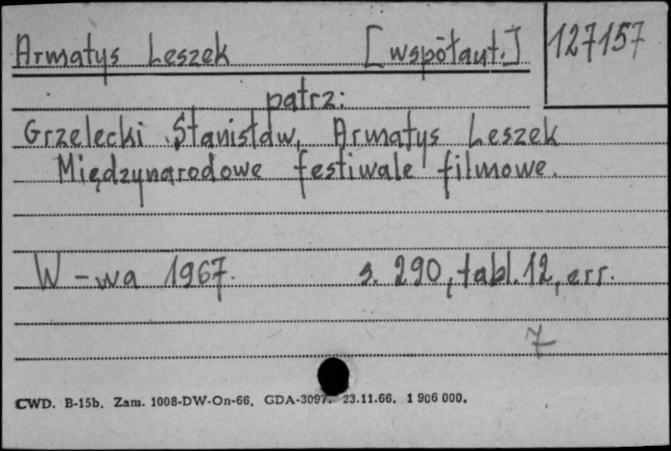 Armatys Leszek [współaut.] 127157
patrz:
Grzelecki Stanisław, Armatys Leszek
Międzynarodowe festiwale filmowe.
W-wa 1967. s. 290, tabl. 12, err.
7
CWD. B-15b. Zam. 1008-DW-On-66. GDA-3097. 23.11.66. 1 906 000.